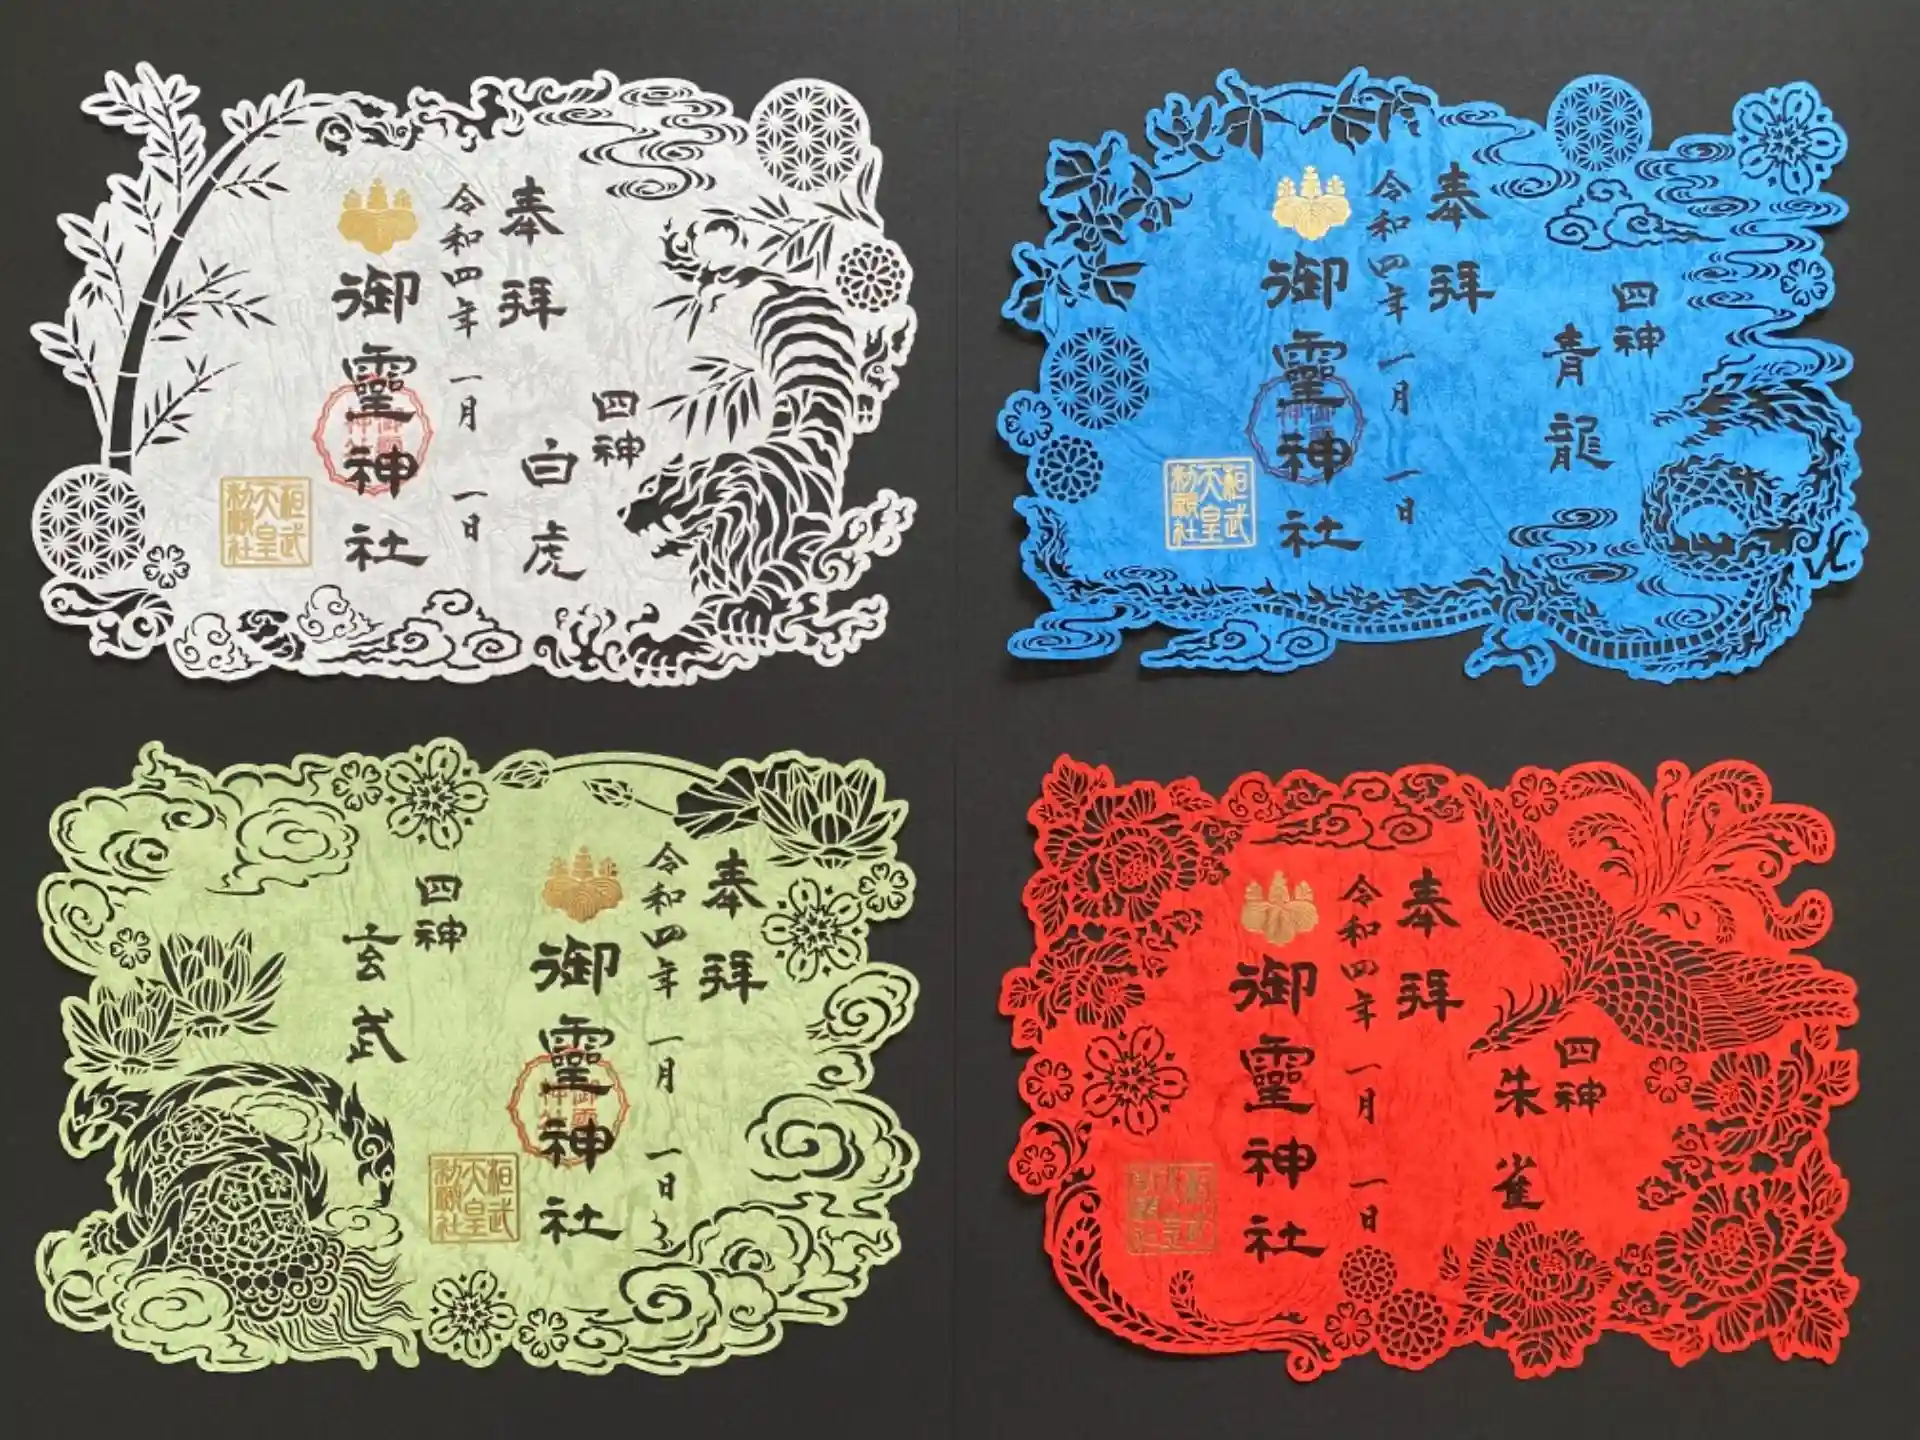 奉拝
令和四年 一月 一日
御靈神社
四神
白虎
桓武
天皇
勅願社
奉拝
令和四年 一月 一日
御靈神社
四神
青龍
桓武
天皇
勅願社
奉拝
令和四年 一月 一日
御靈神社
四神
玄武
桓武
天皇
勅願社
奉拝
令和四年 一月 一日
御靈神社
四神
朱雀